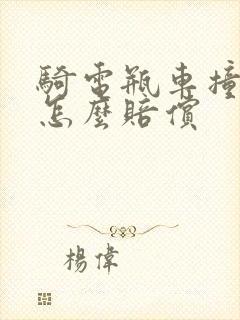 騎電瓶車撞
怎麼賠償
楊偉